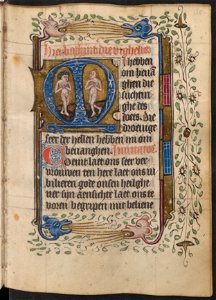 Hier beghint die vighelie
M hebben
om beua
ghen die
suchten
ghe des
doets. Die
droeuege
seer der hellen hebben mi om
beuanghen.
Coemt laet ons seer ver
blouwen ten here laet ons iu
bileren gode onsen heilghe
uer sijn aensichte laet ons
voren begripen met beliene